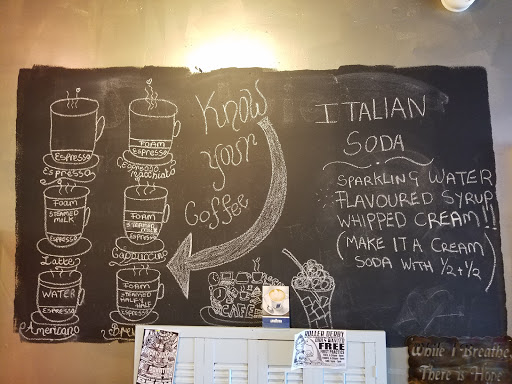 Know
your
Coffee
Espresso
Espresso
FOAM
Espresso
Espresso
macchiato
FOAM
STEAMED
MILK
Espresso
Latte
FOAM
STEAMED
MILK
Espresso
Cappuccino
WATER
Espresso
Americano
FOAM
STEAMED
HALF &
HALF
Espresso
CAFE
ITALIAN
SODA
SPARKLING WATER
FLAVOURED SYRUP
WHIPPED CREAM!!
(MAKE IT A CREAM)
SODA WITH 1/2 + 1/2
ROLLER DERBY
FREE
While I Breathe,
There is Hope